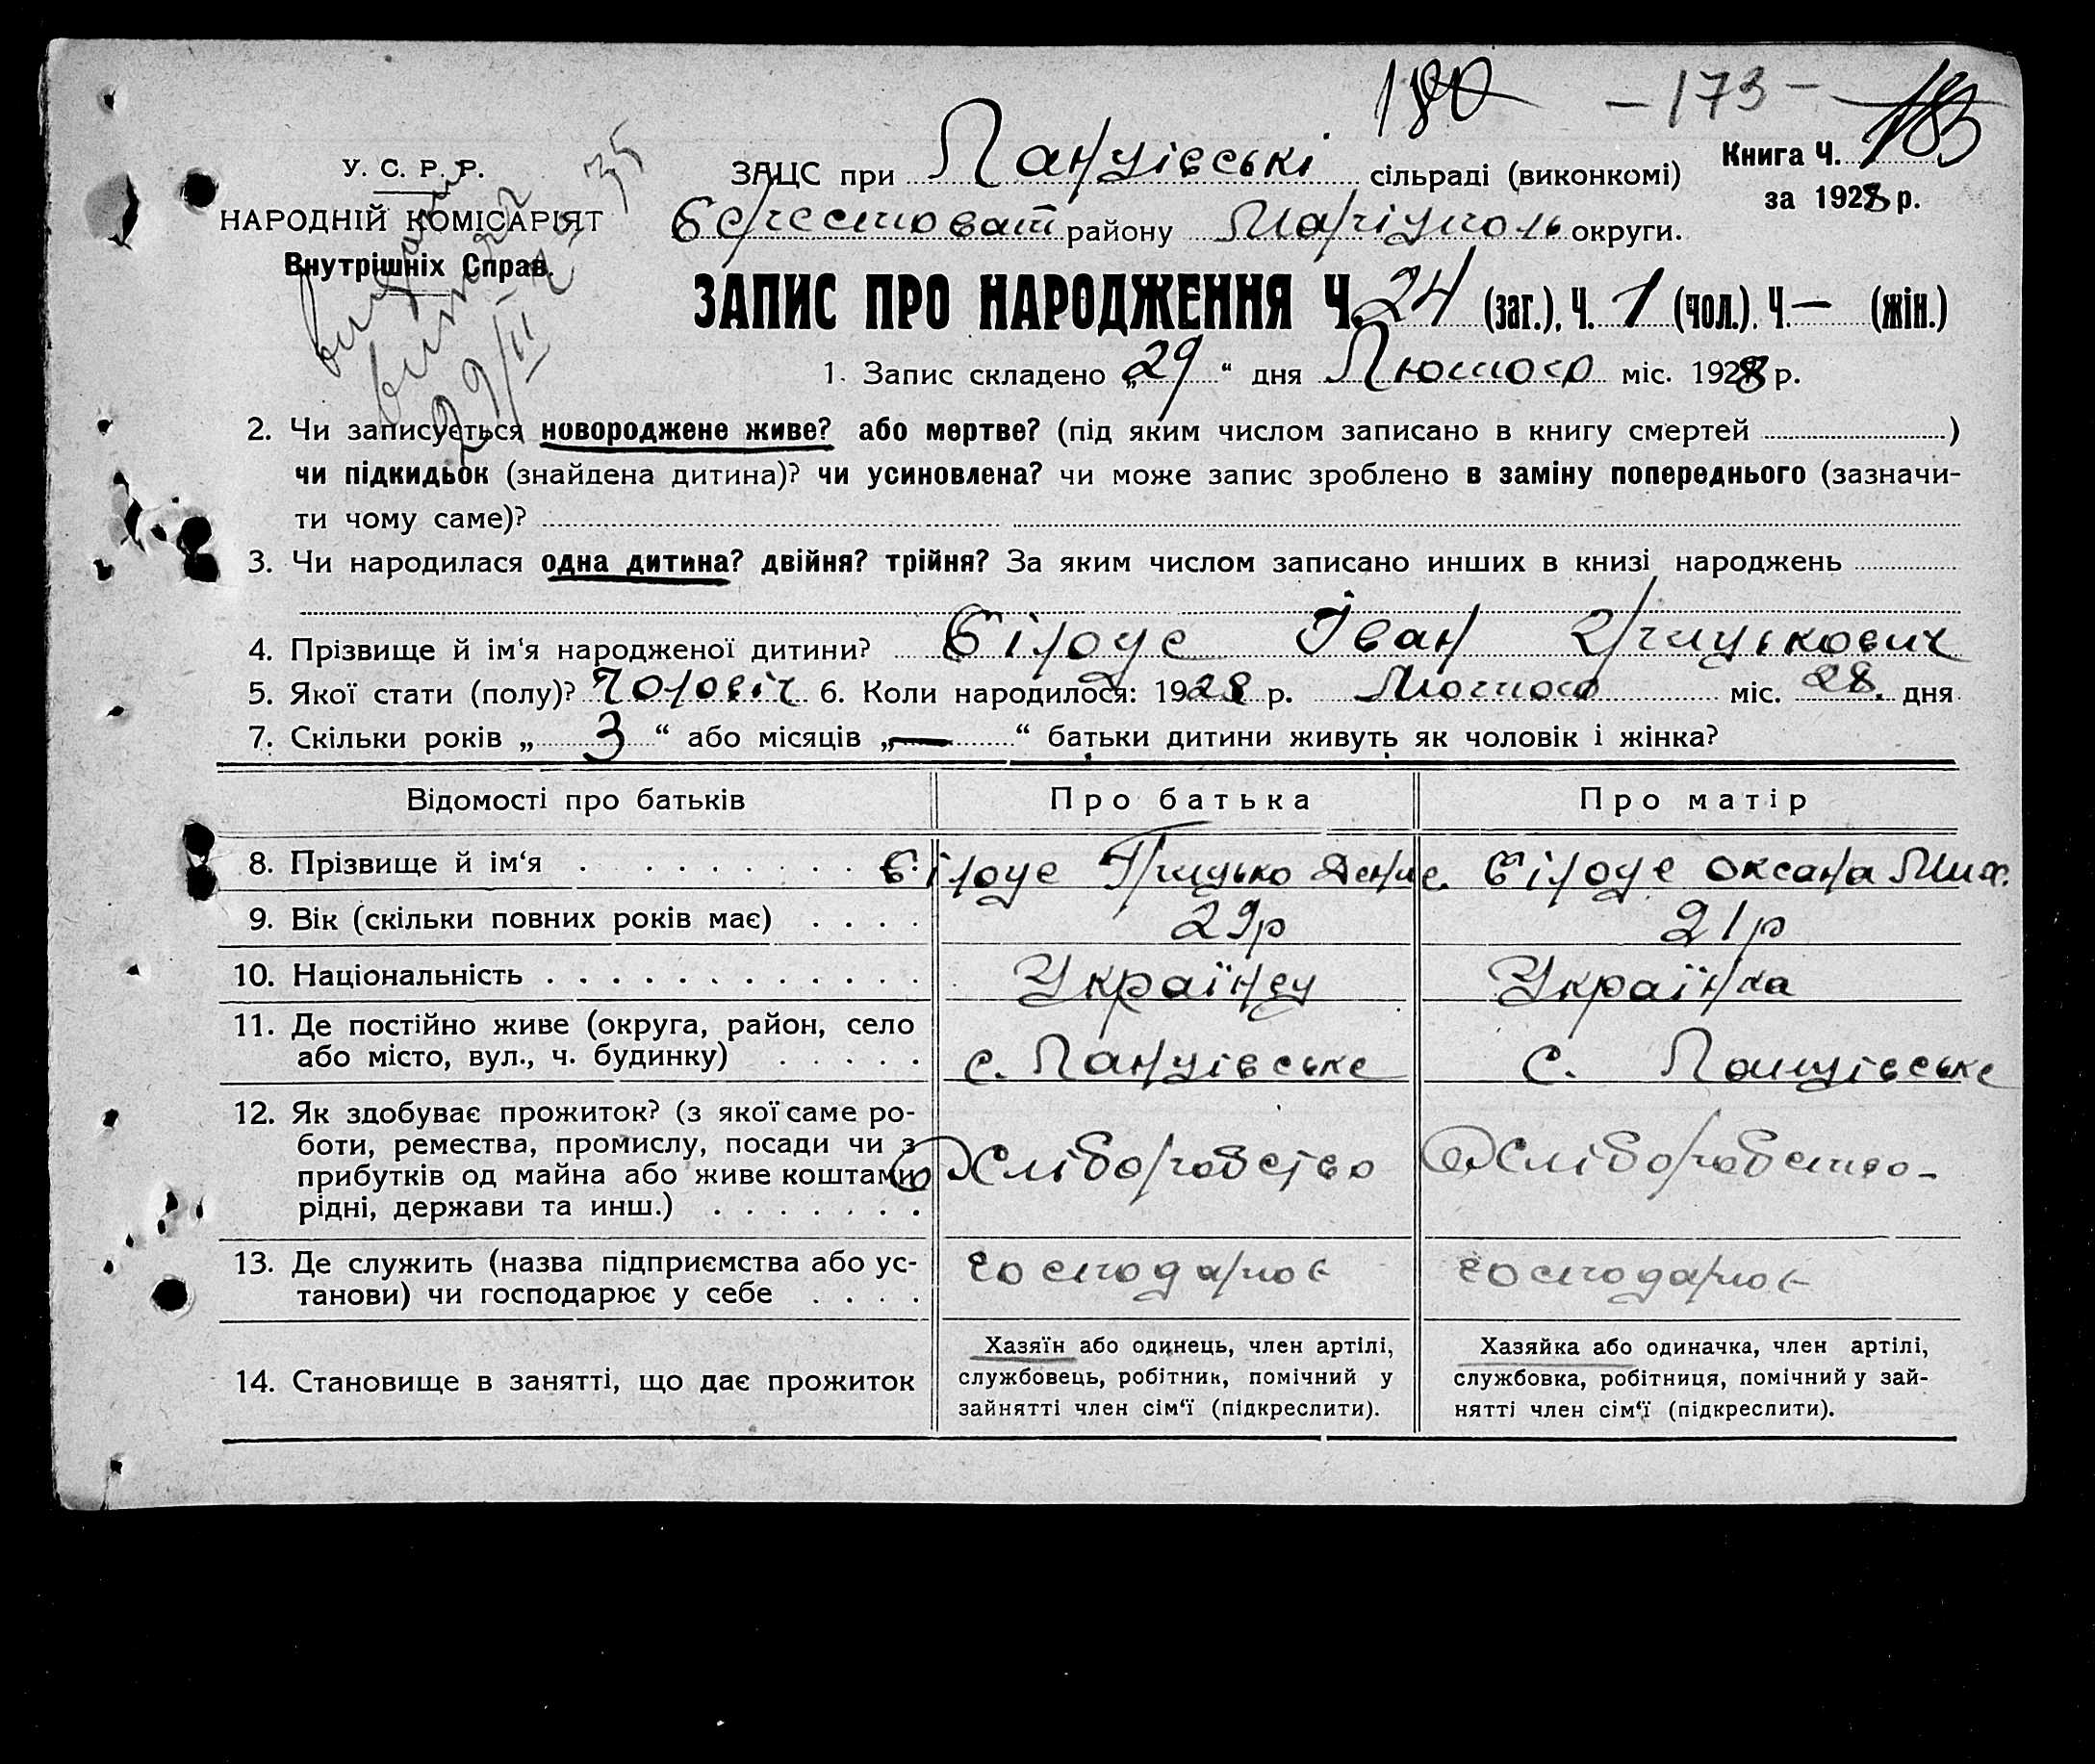 180 — 173 — 183
У. С. Р. Р.
НАРОДНІЙ КОМІСАРІЯТ
Внутрішніх Справ.
ЗАЦС при Ланцівські сільраді (виконкомі)
Книга Ч. 183
за 1928 р.
Берестоват району Маріуполь округи.
ЗАПИС ПРО НАРОДЖЕННЯ Ч. 24 (заг.). Ч. 1 (чол.). Ч. — (жін.)
1. Запис складено „29“ дня Лютого міс. 1928 р.
2. Чи записується новороджене живе? або мертве? (під яким числом записано в книгу смертей )
чи підкидьок (знайдена дитина)? чи усиновлена? чи може запис зроблено в заміну попереднього (зазначи-
ти чому саме)?
3. Чи народилася одна дитина? двійня? трійня? За яким числом записано инших в книзі народжень
4. Прізвище й ім‘я народженої дитини? Білоус Іван Грицькович
5. Якої стати (полу)? Чоловіч 6. Коли народилося: 1928 р. Лютого міс. 28. дня
7. Скільки років „ 3 “ або місяців „—“ батьки дитини живуть як чоловік і жінка?
Відомості про батьків Про батька Про матір
8. Прізвище й ім‘я Білоус Грицько Денис. Білоус Оксана Мих.
9. Вік (скільки повних років має) 29р 21р
10. Національність Українец Українка
11. Де постійно живе (округа, район, село
або місто, вул., ч. будинку) с. Ланцівське с. Ланцівське
12. Як здобуває прожиток? (з якої саме ро-
боти, ремества, промислу, посади чи з
прибутків од майна або живе коштами
рідні, держави та инш.) Хліборобство Хліборобство-
13. Де служить (назва підприємства або ус-
танови) чи господарює у себе господарює господарює
14. Становище в занятті, що дає прожиток
Хазяїн або одинець, член артілі,
службовець, робітник, помічний у
зайнятті член сім‘ї (підкреслити).
Хазяйка або одиначка, член артілі,
службовка, робітниця, помічний у зай-
нятті член сім‘ї (підкреслити).